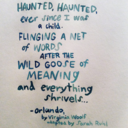 HAUNTED, HAUNTED,
ever since I was
a child.
FLINGING A NET
OF WORDS
AFTER THE
WILD GOOSE OF
MEANING
and everything
shrivels...
-orlando,
by Virginia Woolf
adapted by Sarah Ruhl